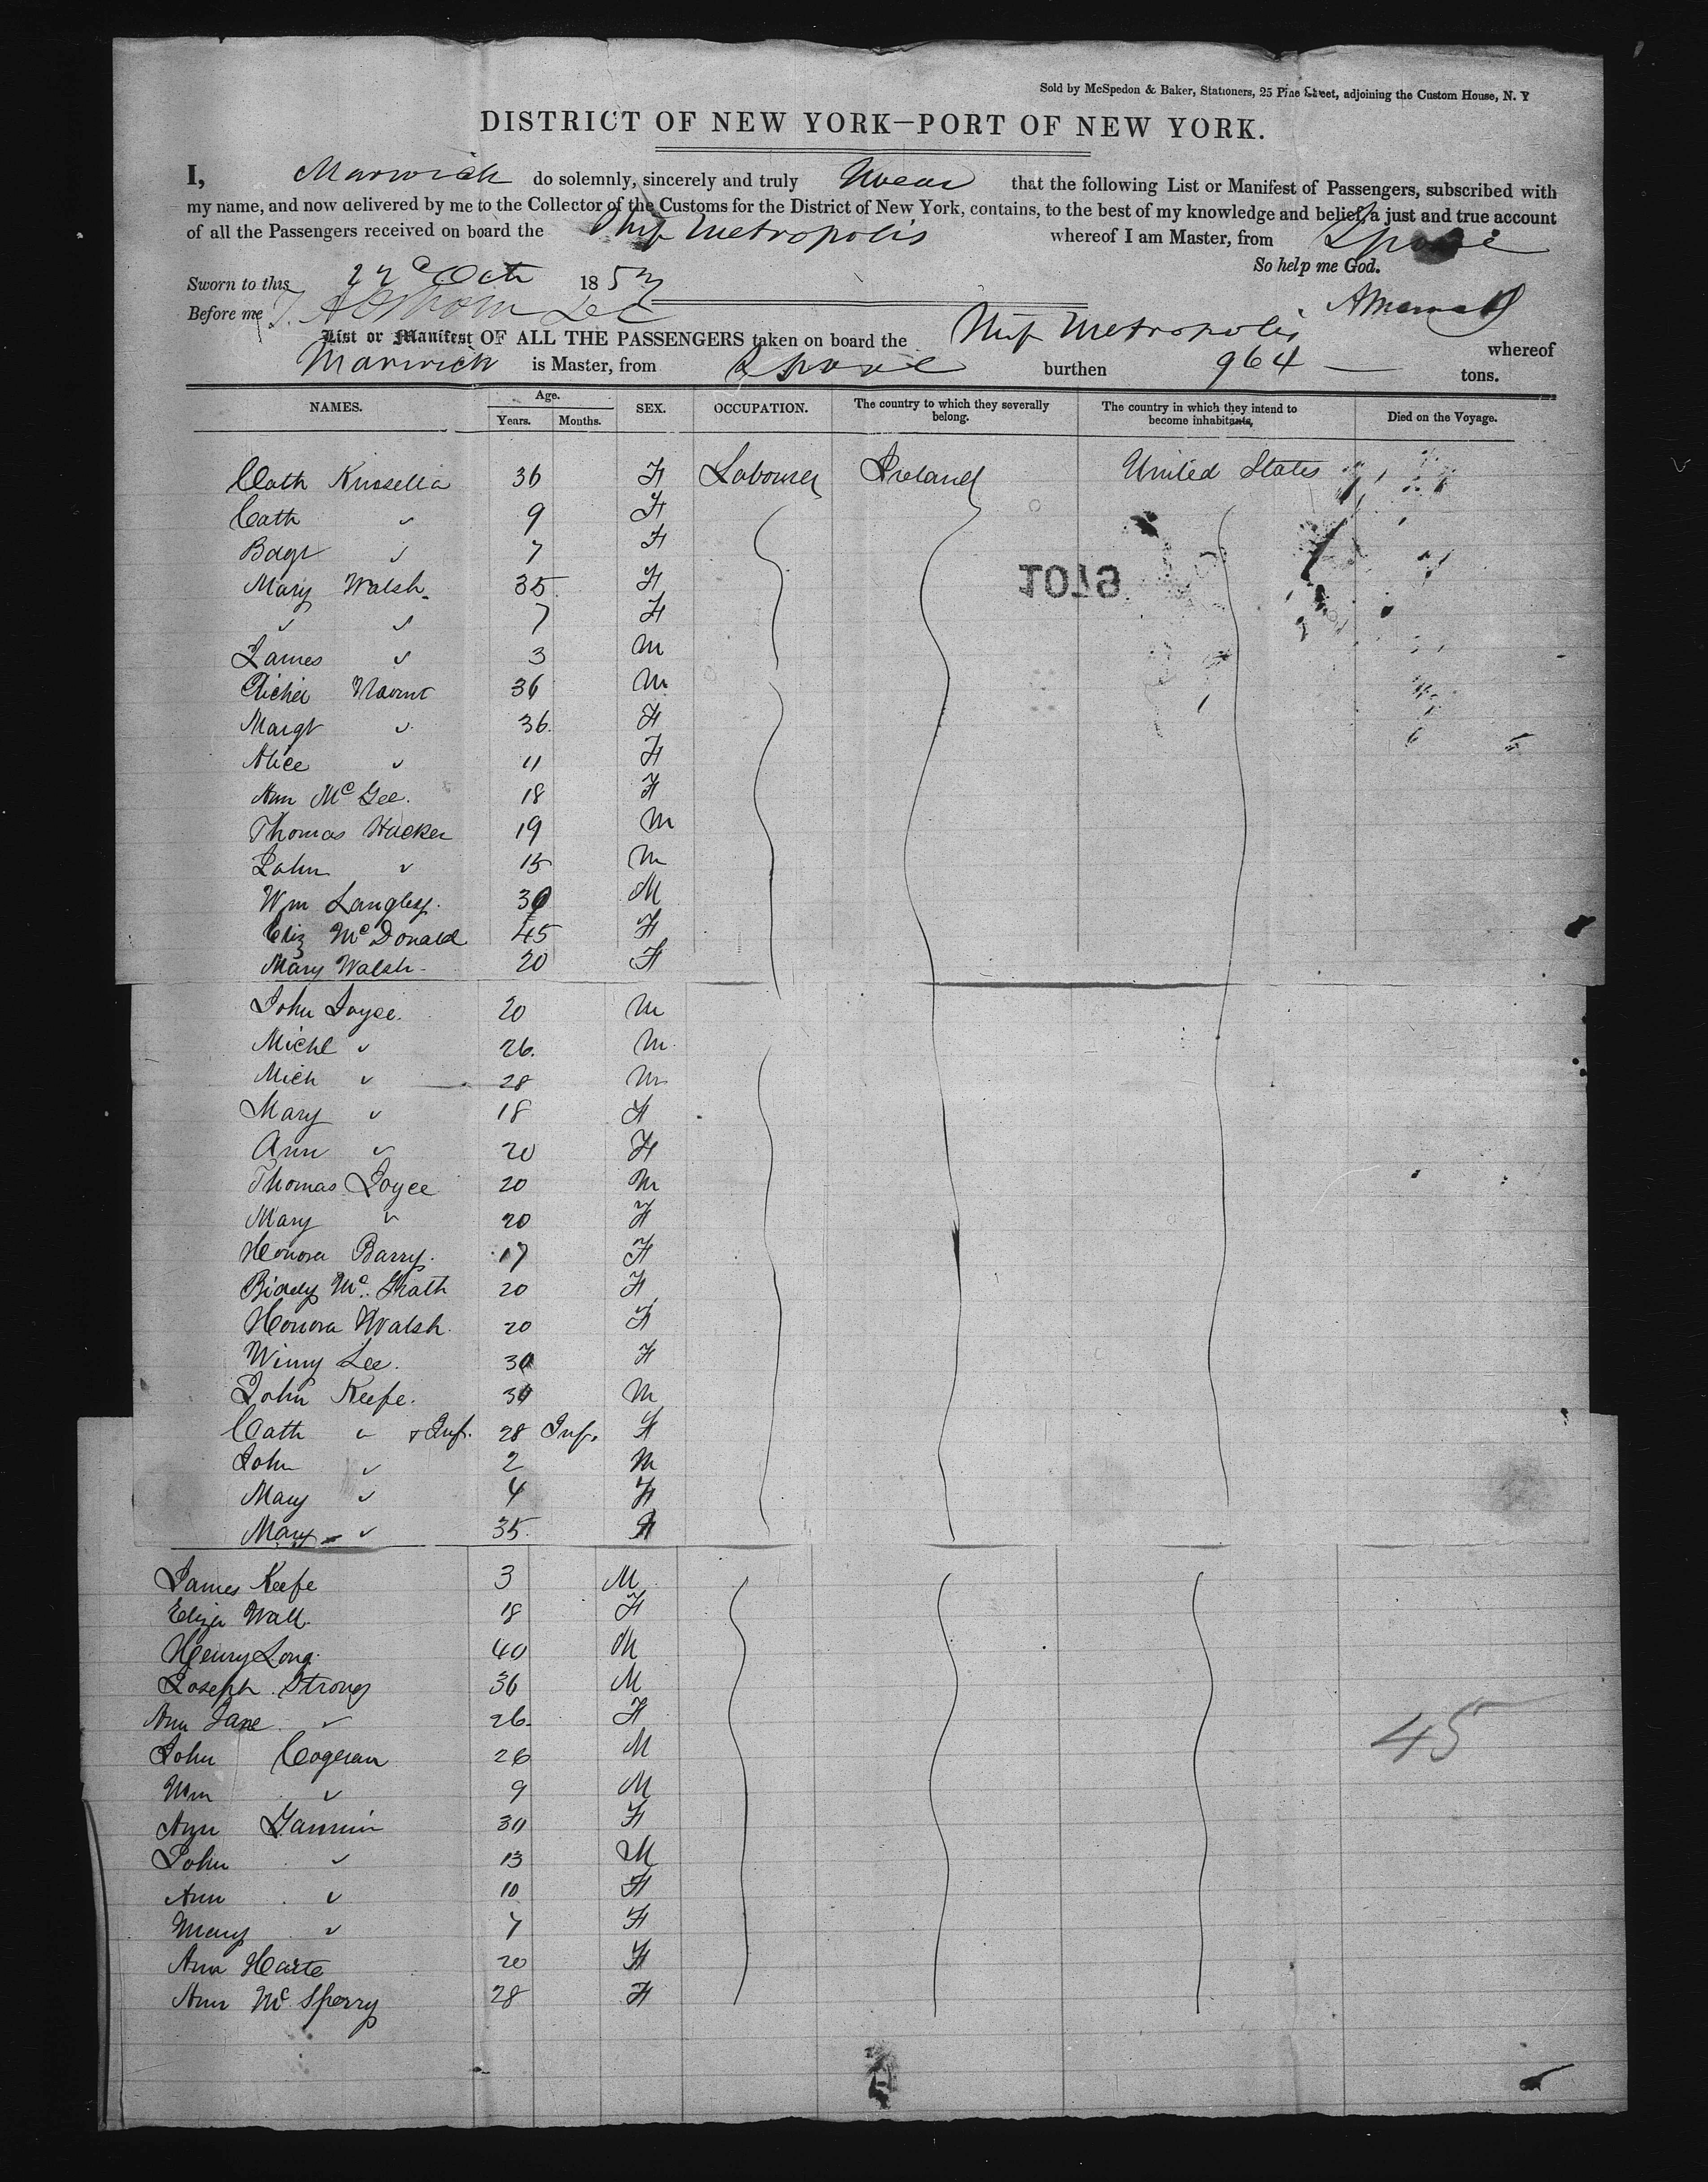 Sold by McSpedon & Baker, Stationers, 25 Pine Street, adjoining the Custom House, N. Y
DISTRICT OF NEW YORK—PORT OF NEW YORK.
I, Marwick do solemnly, sincerely and truly swear that the following List or Manifest of Passengers, subscribed with
my name, and now delivered by me to the Collector of the Customs for the District of New York, contains, to the best of my knowledge and belief, a just and true account
of all the Passengers received on board the Ship Metropolis whereof I am Master, from Lpool
So help me God.
Sworn to this 22d Oct 1853
Before me
List or Manifest OF ALL THE PASSENGERS taken on board the Ship Metropolis whereof
Marwick is Master, from Lpool burthen 964 — tons.
NAMES. Age. Years. Months. SEX. OCCUPATION. The country to which they severally belong. The country in which they intend to become inhabitants, Died on the Voyage.
Cath Kinsella 36 F Labourer Ireland United States
Cath " 9 F
Bdgt " 7 F
1079
Mary Walsh 35 F
" " 7 F
James " 3 M
36 M
Margt " 36 F
Alice " 11 F
Ann McGee. 18 F
Thomas Hacker 19 M
John " 15 M
Wm Langley. 30 M
Eliz McDonald 45 F
Mary Walsh 20 F
John Joyce. 20 M
Michl " 26. M
Mich " 28 M
Mary " 18 F
Ann " 20 F
Thomas Joyce 20 M
Mary " 20 F
Honora Barry. 17 F
Biddy Mc Grath 20 F
Honora Walsh. 20 F
Winny Lee. 30 F
John Keefe. 30 M
Cath " & Inf. 28 Inf. F
John " 2 M
Mary " 4 F
Mary " 35. F
James Keefe 3 M
Eliza Wall. 18 F
Henry Long. 40 M
Joseph Strong 36 M
Ann Jane " 26. F
John Cogeran 26 M
Wm " 9 M
Ann Gannin 30 F
John " 13 M
Ann " 10 F
Mary " 7 F
Ann Harte 20 F
Ann Mc Sperry 28 F
45